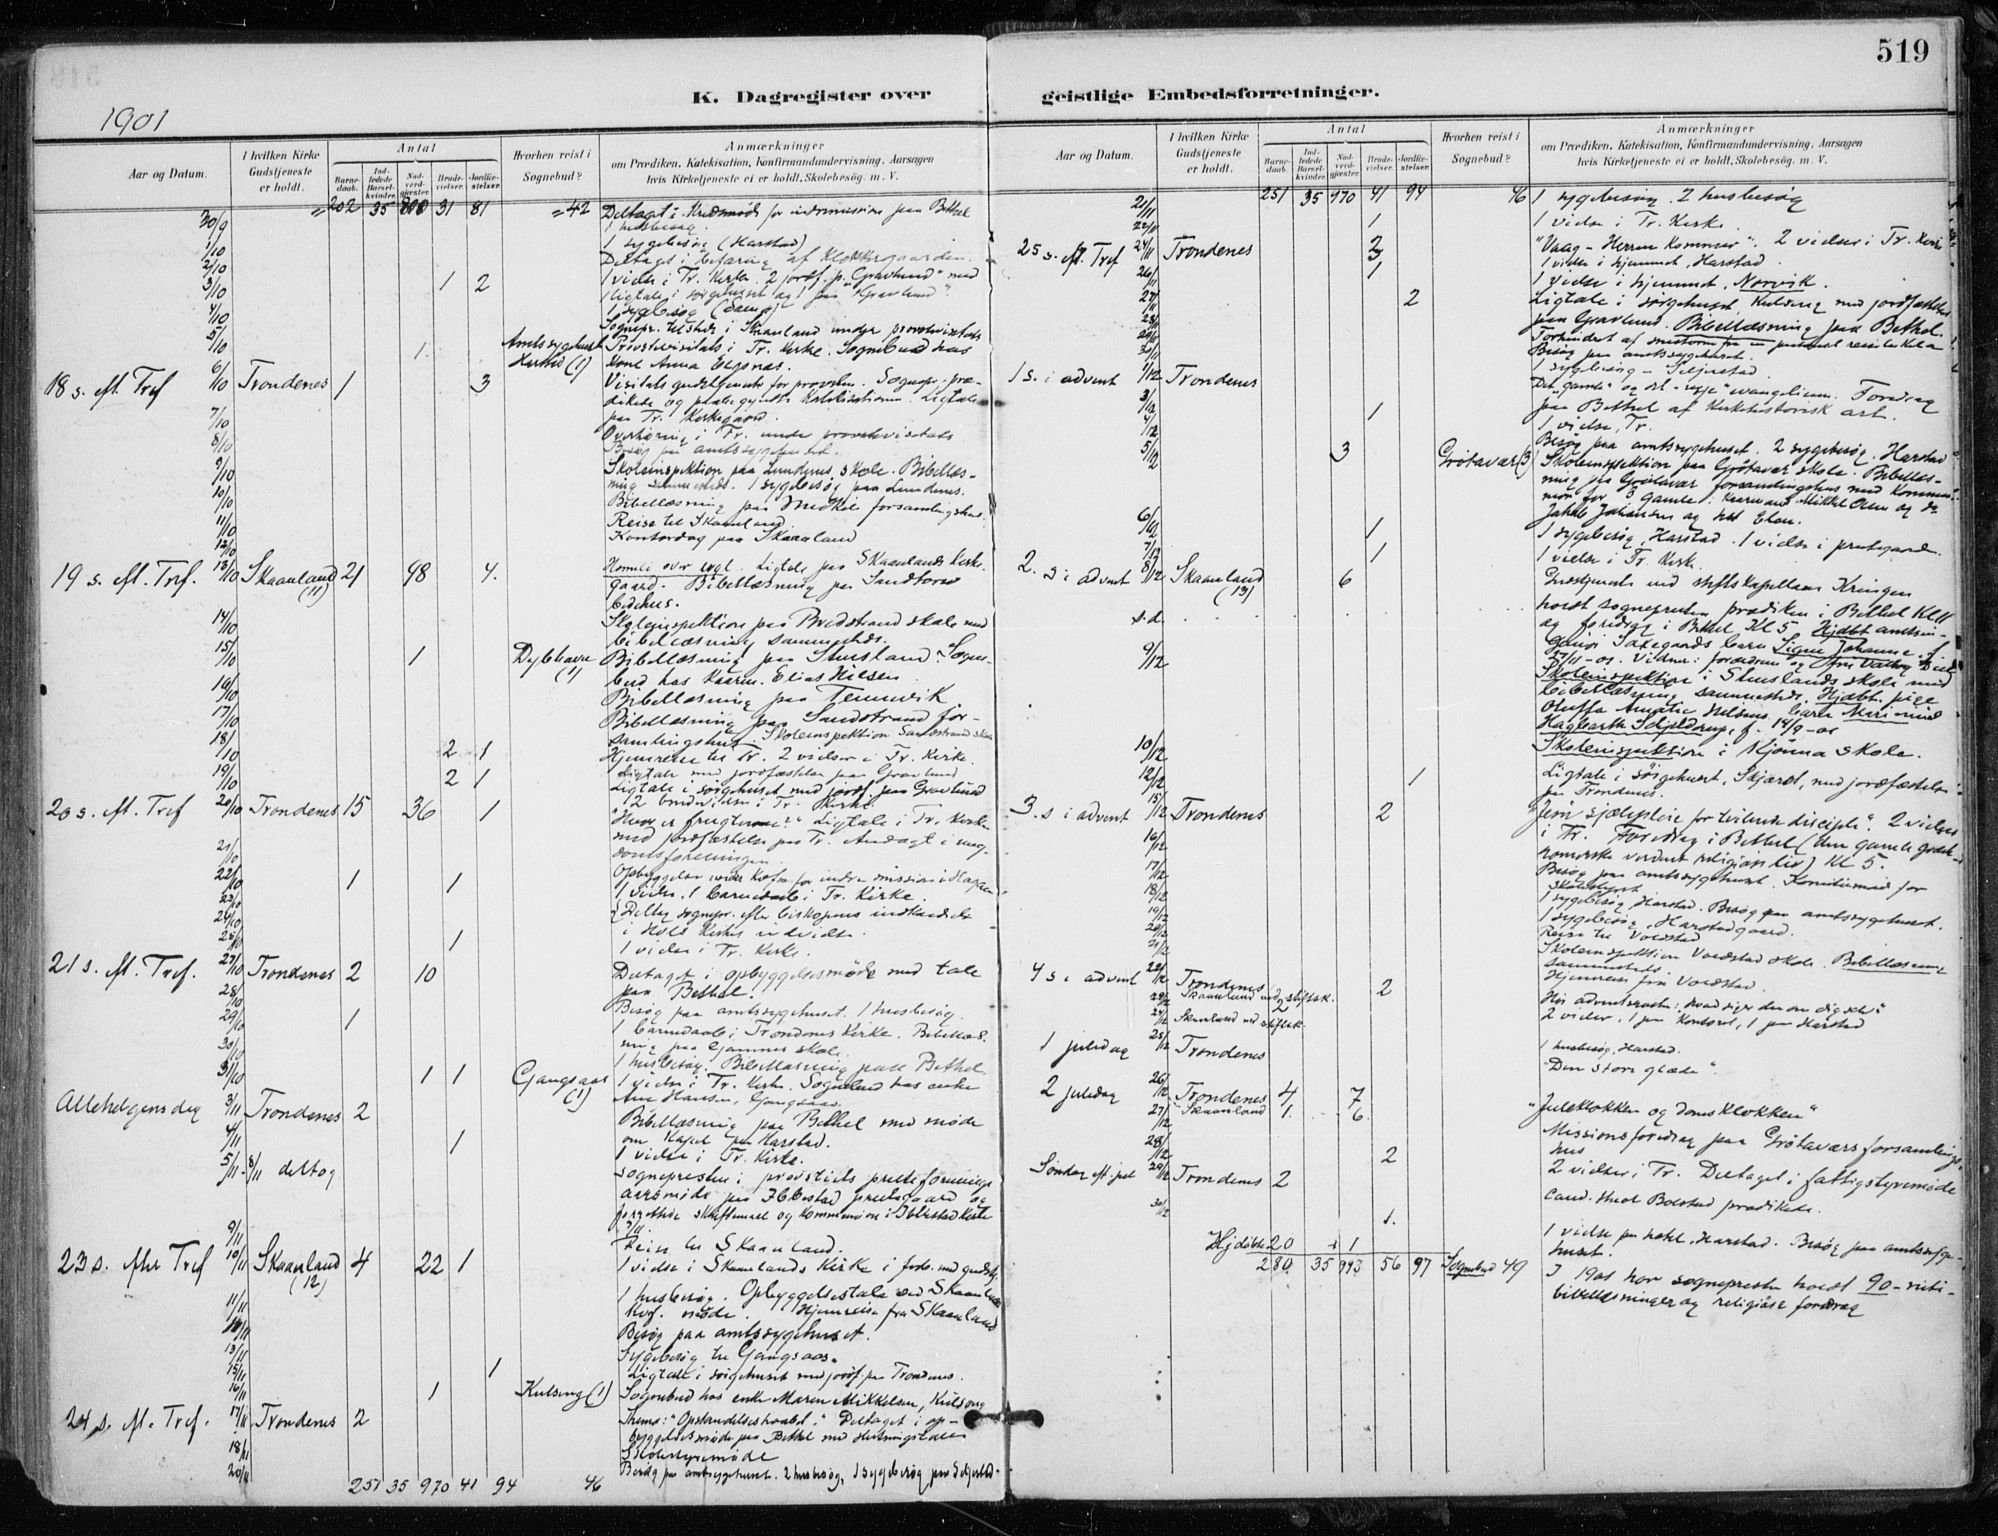 519
K. Dagregister over geistlige Embedsforretninger.
1901
Aar og Datum.
I hvilken Kirke Gudstjeneste er holdt.
Antal
Barne-daab.
Ind-ledede Barsel-kvinder.
Nad-verd-gjæster.
Brude-vielser.
Jordfæ-stelser.
Hvorhen reist i Sognebud?
Anmærkninger
om Prædiken, Katekisation, Konfirmandundervisning, Aarsagen
hvis Kirketjeneste ei er holdt, Skolebesøg. m. V.
30/9 202 35 31 81 42 Deltaget i Kredsmøde for indremissionen paa Bethel
1 husbesøg.
1/10 1 sygebesøg (Harstad)
2/10 Deltaget i befaring af Klokkergaarden.
3/10 1 2 1 vielse i Tr. Kirke. 2 jordf. p. "Gravlund" med
1 ligtale i sørgehuset og 1 paa "Gravlund".
4/10 1 sygebesøg
5/10 Sognepr. tilstede i Skaanland under provstevisitats
1 Amtssygehuset Harstad (1) Provstevisitats i Tr. Kirke. Sognebud hos
Kone Anna
18 s. eft. Tref 6/10 Trondenes 1 3 Visitatsgudstjeneste for provsten. Sognepr. præ-
dikede og paabegyndte Katekisationen. Ligtale
7/10 paa Tr. Kirkegaard.
8/10 Overhøring i Tr. under provstevisitats
Besøg paa amtssygehuset.
9/10 Skoleinspektion paa Lundenes skole. Bibellæs-
ning sammesteds. 1 sygebesøg paa Lundenes.
10/10 Bibellæsning paa Medkil forsamlingshus.
11/10 Reise til Skaanland.
12/10 Kontordag paa Skaanland
19 s. eft. Tref. 13/10 Skaanland (11) 21 98 4. Homili over evgl. Ligtale paa Skaanlands kirke-
gaard. Bibellæsning paa Sandtorv
bedehus.
14/10 Skoleinspektion paa Bredstrand skole med
bibellæsning sammesteds.
15/10 1 (1) Bibellæsning paa Stunsland. Sogne-
bud hos Kaarm. Elias Nilsen
16/10 Bibellæsning paa Tennevik
17/10 Bibellæsning paa Sandstrand for-
samlingshus. Skoleinspektion Sandstrand skole
18/10 2 1 Hjemreise til Tr. 2 vielser i Tr. Kirke.
Ligtale med jordfæstelse paa Gravlund
19/10 2 1 Ligtale i sørgehuset med jordf. paa Gravlund
2 brudevielser i Tr. Kirke.
20 s. eft. Tref 20/10 Trondenes 15 36 1 "Hvor er frugterne?" Ligtale i Tr. Kirke
med jordfæstelse paa Tr. Andagt i ung-
21/10 domsforeningen.
22/10 1 1 Opbyggelse under Kofm. for indre mission i
23/10 1 vielse, 1 barnedaab i Tr. Kirke.
24/10 Deltog sognepr. efter biskopens indkaldelse
i Hols Kirkes indvielse.
25/10 1 1 vielse i Tr. Kirke.
21 s. eft. Tref. 27/10 Trondenes 2 10 Deltaget i opbyggelsesmøde med tale
paa Bethel.
28/10 Besøg paa amtssygehuset. 1 husbesøg.
29/10 1 1 barnedaab i Trondenes Kirke. Bibellæs-
30/10 ning paa Gamnes skole.
1 husbesøg. Bibellæsning paa Bethel.
31/10 1 1 Gangsaas (1) 1 vielse i Tr. Kirke. Sognebud hos enke
Ane Hansen, Gangsaas.
Allehelgensdag 3/11 Trondenes 2 Bibellæsning paa Bethel med møde
om Kapel paa Harstad.
4/11 1 1 vielse i Tr. Kirke.
5/11 - 8/11 deltog sognepresten i provstiets presteforenings
aarsmøde paa Ibbestad prestegaard og
forrettede skriftemaal og Kommunion i Ibbestad Kirke
7/11.
9/11 Reise til Skaanland.
23 s. efter Tref 10/11 Skaanland (12) 4 22 1 1 vielse i Skaanlands Kirke i forb. med gudstj.
1 husbesøg. Opbyggelsestale ved Skaanlands
11/11 Kof. møde. Hjemreise fra Skaanland
Besøg paa amtssygehuset.
13/11 Sygebesøg til Gangsaas.
15/11 1 Ligtale i sørgehuset med jordf. paa Trondenes.
16/11 1 Kulseng (1) Sognebud hos enke Maren Mikkelsen, Kulseng
24 s. eft. Tref. 17/11 Trondenes 2 Thema: "Opstandelseshaabet." Deltaget i op-
byggelsesmøde paa Bethel med
18/11 Skolestyremøde
20/11 Besøg paa amtssygehuset. 2 husbesøg, 1 sygebesøg paa
251 35 970 41 94 46
Aar og Datum.
I hvilken Kirke Gudstjeneste er holdt.
Antal
Barne-daab.
Ind-ledede Barsel-kvinder.
Nad-verd-gjæster.
Brude-vielser.
Jordfæ-stelser.
Hvorhen reist i Sognebud?
Anmærkninger
om Prædiken, Katekisation, Konfirmandundervisning, Aarsagen
hvis Kirketjeneste ei er holdt, Skolebesøg. m. V.
21/11 251 35 970 41 94 46 1 sygebesøg. 2 husbesøg
22/11 1 1 vielse i Tr. Kirke.
25 s. eft. Tref 24/11 Trondenes "Vaag - Herren kommer". 2 vielser i Tr. Kirke
3 1 vielse i hjemmet, Harstad.
26/11 1 1 vielse i hjemmet, Norvik.
27/11 2 Ligtale i sørgehuset Kulseng med jordfæstelse
28/11 paa Gravlund. Bibellæsning paa Bethel.
29/11 Forhindret af
30/11 Besøg paa amtssygehuset.
1 sygebesøg -
1 s. i advent 1/12 Trondenes "Det gamle" og det "nye" evangelium. Foredrag
3/12 1 paa Bethel af Kirkehistorisk art.
4/12 1 vielse, Tr.
Besøg paa amtssygehuset. 2 sygebesøg. Harstad
5/12 3 Grøtavær (3) Skoleinspektion paa Grøtavær skole. Bibellæs-
ning paa Grøtavær forsamlingshus med Kommu-
nion for 3 gamle: Kaarmand Mikkel Olsen og do
Jakob Johansen og hst Elen.
6/12 1 1 sygebesøg, Harstad. 1 vielse i prestegaarden.
7/12 1 1 vielse i Tr. Kirke.
2. s i advent 8/12 Skaanland (13) 6 Gudstjeneste ved stiftskapellan Kringen
s.d. holdt sognepresten prædiken i Bethel Kl 11
og foredrag i Bethel Kl 5. Hjdøbt amtsin-
geniør barn Signe Johanne, f.
9/12 27/11-01. Vidner: forældrene og
Skoleinspektion i Stunslands skole med
bibellæsning sammesteds. Hjdøbt pige
Oluffa Amalie Nilsens barn
Hagbarth f. 14/9-01
10/12 Skoleinspektion i skole.
12/12 1 Ligtale i sørgehuset, Skjærst, med jordfæstelse
paa Trondenes.
3. s i advent 15/12 Trondenes 2 Jesu sjælepleie for tvilende disciple". 2 vielser
16/12 i Tr. Foredrag i Bethel (den gamle græsk-
romerske verdens religiøse liv) Kl 5.
17/12 Besøg paa amtssygehuset. Komitemøde for
skolestyret.
18/12 1 sygebesøg Harstad. Besøg paa amtssygehuset.
19/12 1 sygebesøg, Harstadgaard.
20/12 Reise til Voldstad
21/12 Skoleinspektion Voldstad skole. Bibellæsning
sammesteds.
Hjemreise fra Voldstad.
4 s. i advent 22/12 Trondenes 2 Hør adventsrøsten: hvad siger du om dig selv?"
23/12 Skaanland ved stiftsk. 2 2 vielser, 1 paa Kontoret, 1 paa Harstad
24/12 Skaanland ved stiftsk. 1 husbesøg, Harstad.
1 juledag 25/12 Trondenes "Den store glæde".
2 juledag 26/12 Trondenes 4 7 "Juleklokken og domsklokken"
27/12 Skaanland 1. 6. Missionsforedrag paa Grøtaværs forsamlings-
hus
28/12 2 2 vielser i Tr. Deltaget i fattigstyremøde
Søndag eft jul 29/12 Trondenes 2 Cand. theol Bolstad prædikede.
30/12 1. 1 vielse paa hotel, Harstad. Besøg paa amtssyge-
huset.
Hjdøbte 20 + 1
280 35 993 56 97 Sognebud 49 I 1901 har sognepresten holdt 90-nitti-
bibellæsninger og religiøse foredrag